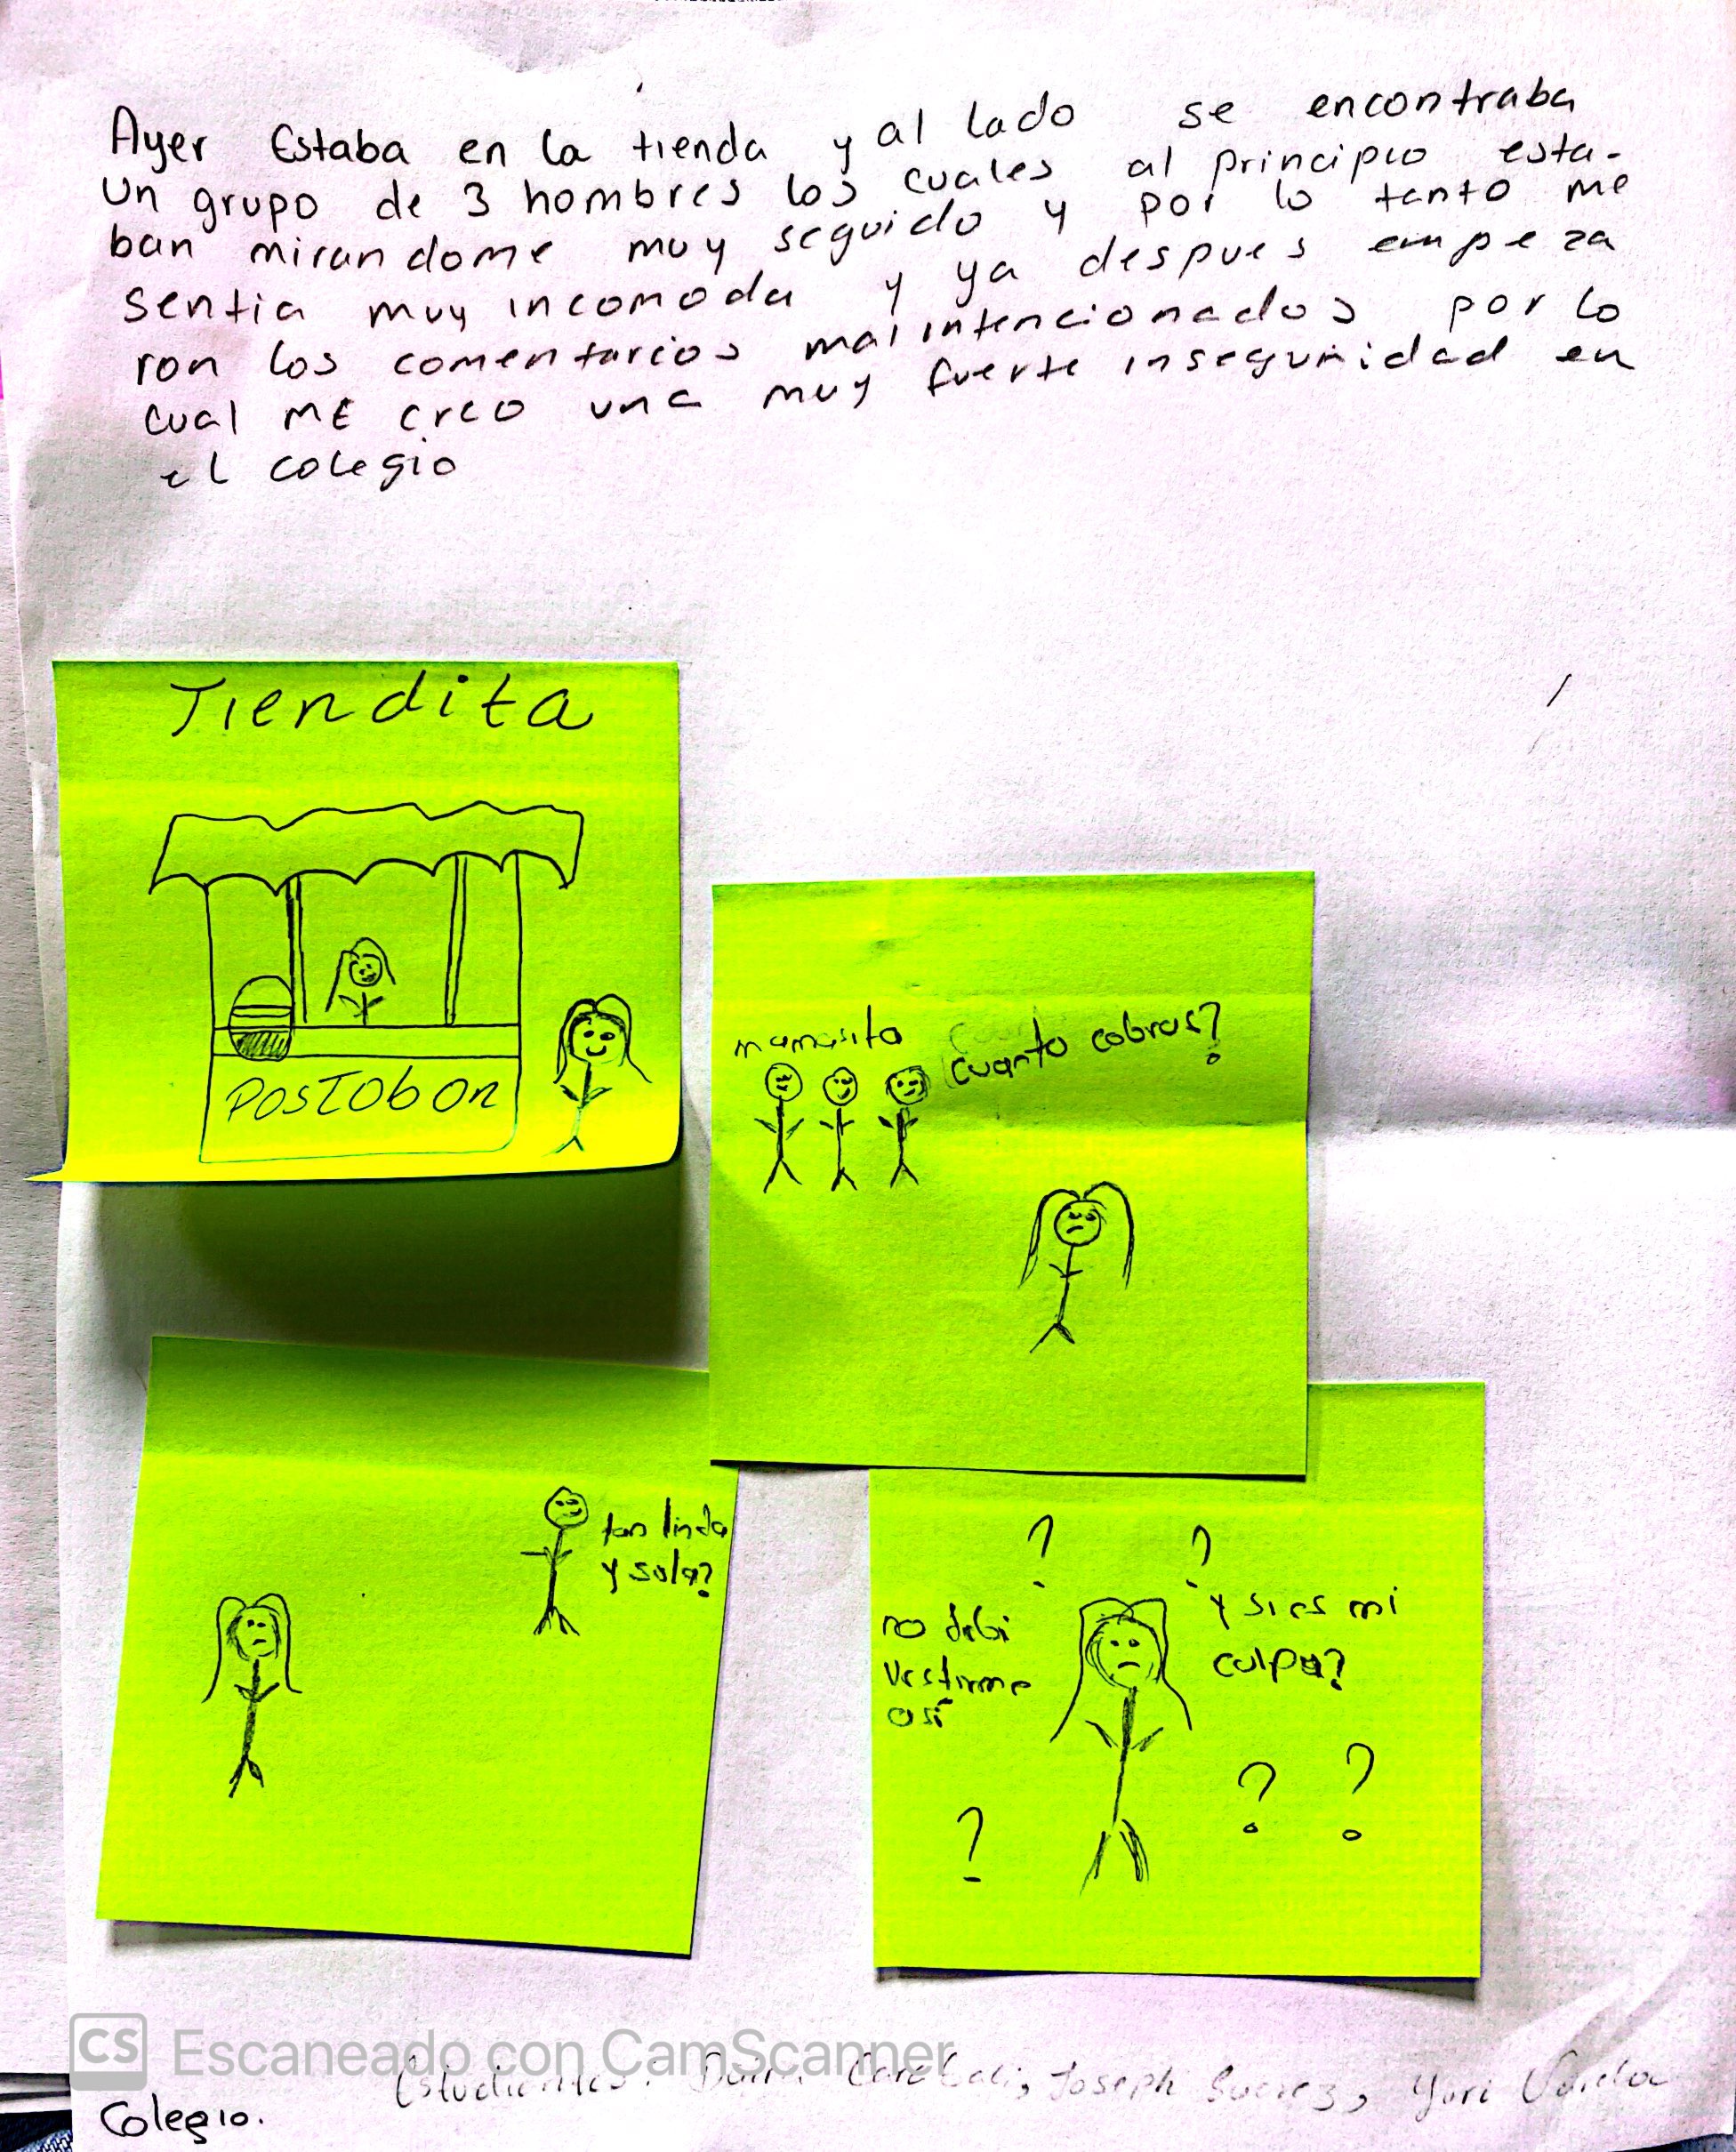 Ayer Estaba en la tienda y al lado se encontraba
un grupo de 3 hombres los cuales al principio esta-
ban mirandome muy seguido y por lo tanto me
sentia muy incomoda y ya despues empeza
ron los comentarios mal intencionados por lo
cual me creo una muy fuerte inseguridad en
el colegio
Tiendita
POSTOBON
mamasita
cuanto cobras?
tan linda
y sola?
no debi
vestirme
así
y si es mi
culpa?
? ? ? ? ?
CS Escaneado con CamScanner
Estudiantes: Joseph Suarez, Yuri
Colegio.